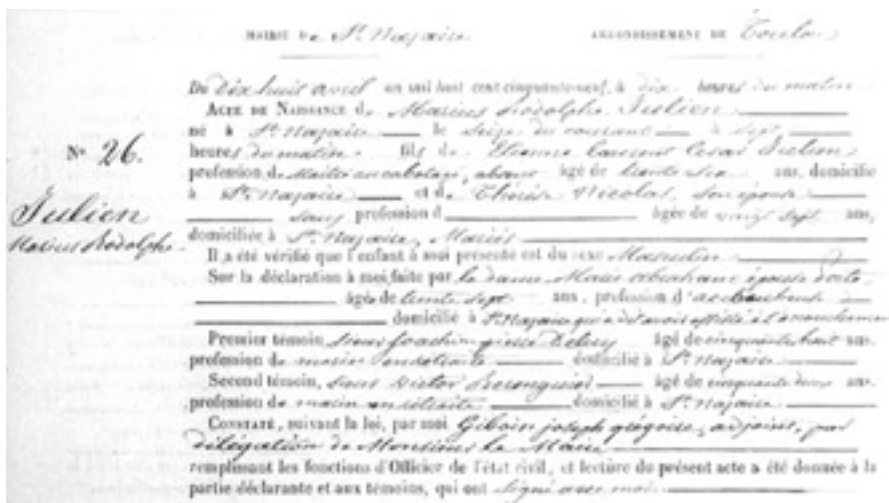 MAIRIE De St Nazaire ARRONDISSEMENT DE Toulon
Du dix huit avril en mil huit cent cinquante-neuf, à dix heures du matin
ACTE DE NAISSANCE de Marius Rodolphe Julien
né à St Nazaire le Seize du courant à sept
Nº 26.
heures du matin fils de Etienne Laurent Cesar Julien
profession de Maitre au cabotage, absent âgé de trente six ans, domicilié
à St Nazaire et de Thérèse Nicolas, son épouse
Julien
Marius Rodolphe
sans profession d âgée de vingt sept ans,
domiciliée à St Nazaire, Mariés
Il a été vérifié que l'enfant à moi présenté est du sexe Masculin
Sur la déclaration à moi faite par la dame Marie épouse
âgée de trente sept ans, profession d'accoucheuse
domicilié à St Nazaire qui a dit avoir assisté à l'accouchement
Premier témoin, Sieur Joachim âgé de cinquante huit ans,
profession de marin en retraite domicilié à St Nazaire
Second témoin, Sieur Victor âgé de cinquante deux ans,
profession de marin en retraite domicilié à St Nazaire
CONSTATÉ, suivant la loi, par moi Giboin joseph grégoire, adjoint, par
délégation de Monsieur le Maire
remplissant les fonctions d'Officier de l'état civil, et lecture du présent acte a été donnée à la
partie déclarante et aux témoins, qui ont signé avec moi